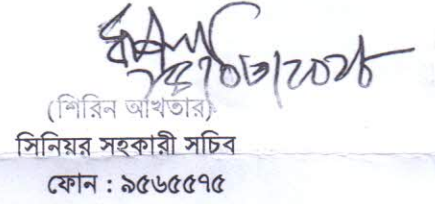 (শিরিন আখতার)
সিনিয়র সহকারী সচিব
ফোন : ৯৫৬৫৫৭৫